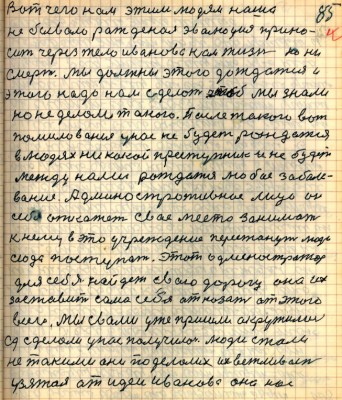 Вот чего нам этим людям надо 85
не бывало рождения эволюция прино-
сит через тело иванова нам жизнь а не
смерть. мы должны этого дождатся и
этого надо нам сделат чтоб мы знали
но не делом такого. После такого вот
помилования у нас не будет рождатся
в людях ни какой преступник и не будет
между нами рождатся любое заболе-
вание. Административное лицо он
себе опасает свае место занимат
к нему в это учреждение перестанут люди
сюда поступат. Этот администратор
для себя найдет сваю дорогу она их
заставит сама себя отказат от этого
всего. Мы с вами уже пришли окружили
сделали у нас получилос люди стали
не такими они поделались вежливыми
узятая от идеи иванова она нас